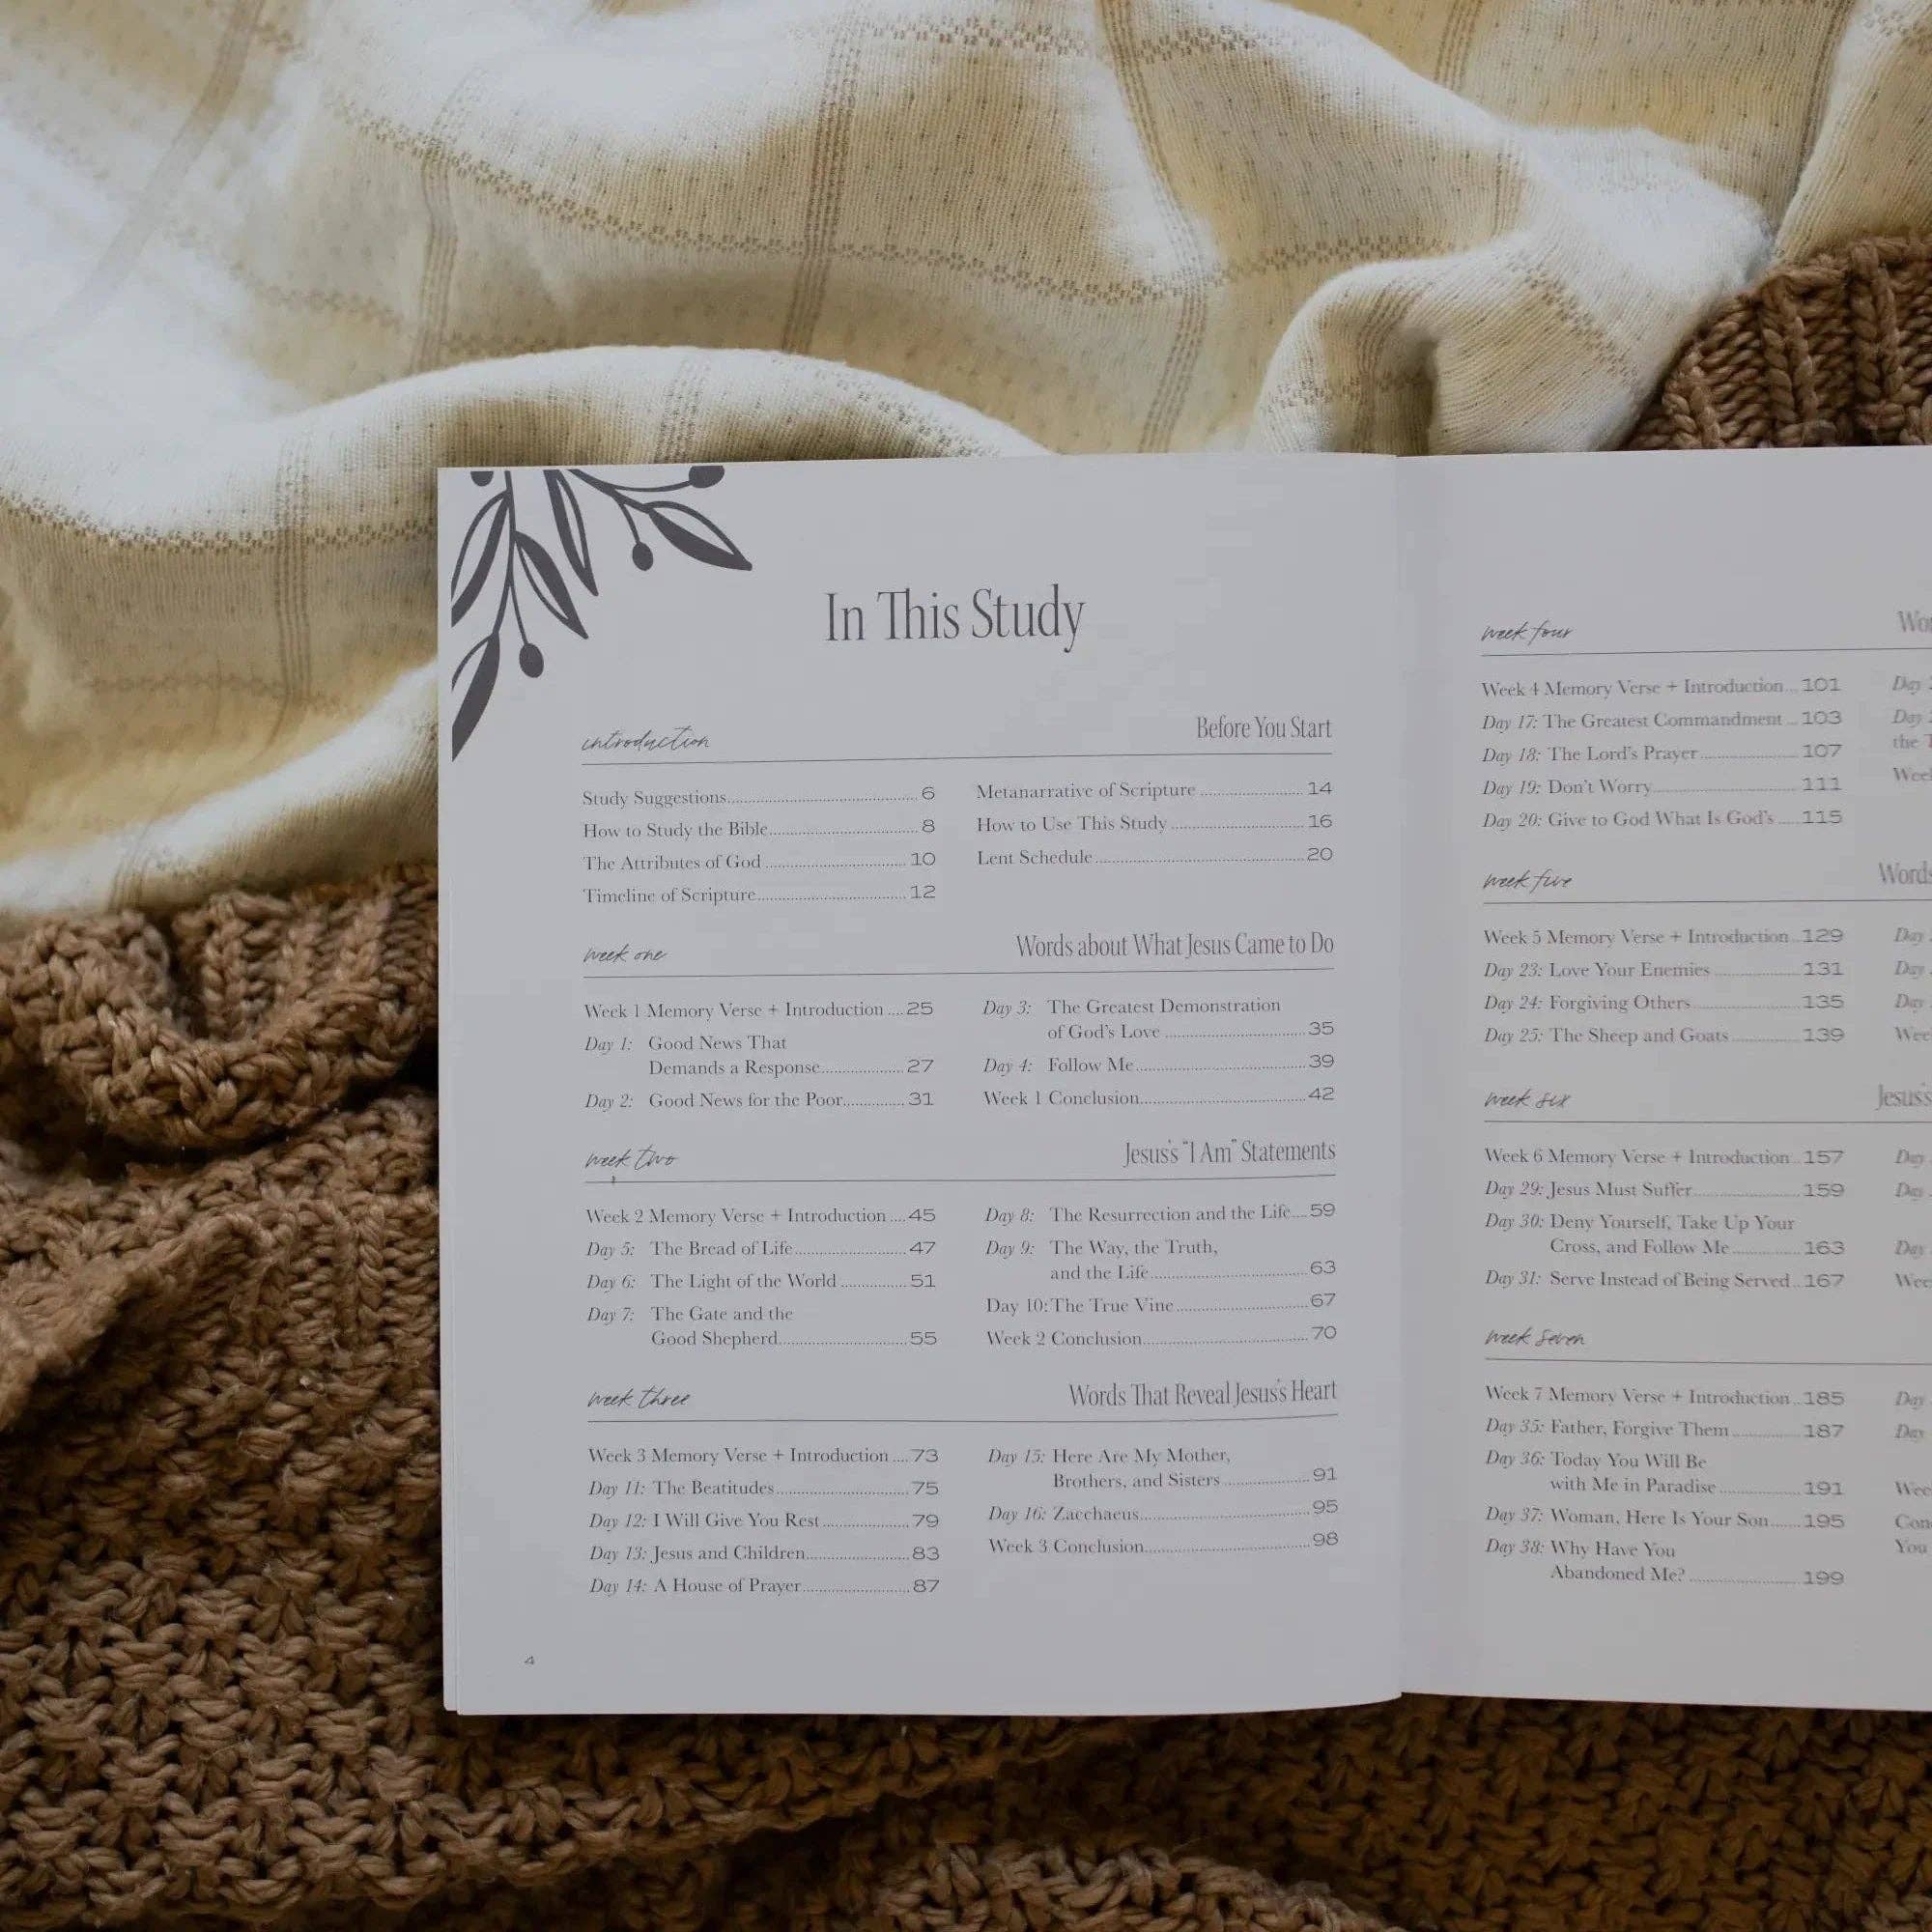 In This Study
introduction Before You Start
Study Suggestions 6
How to Study the Bible 8
The Attributes of God 10
Timeline of Scripture 12
Metanarrative of Scripture 14
How to Use This Study 16
Lent Schedule 20
week one Words about What Jesus Came to Do
Week 1 Memory Verse + Introduction 25
Day 1: Good News That
Demands a Response 27
Day 2: Good News for the Poor 31
Day 3: The Greatest Demonstration
of God's Love 35
Day 4: Follow Me 39
Week 1 Conclusion 42
week two Jesus's "I Am" Statements
Week 2 Memory Verse + Introduction 45
Day 5: The Bread of Life 47
Day 6: The Light of the World 51
Day 7: The Gate and the
Good Shepherd 55
Day 8: The Resurrection and the Life 59
Day 9: The Way, the Truth,
and the Life 63
Day 10: The True Vine 67
Week 2 Conclusion 70
week three Words That Reveal Jesus's Heart
Week 3 Memory Verse + Introduction 73
Day 11: The Beatitudes 75
Day 12: I Will Give You Rest 79
Day 13: Jesus and Children 83
Day 14: A House of Prayer 87
Day 15: Here Are My Mother,
Brothers, and Sisters 91
Day 16: Zacchaeus 95
Week 3 Conclusion 98
4
week four
Week 4 Memory Verse + Introduction 101
Day 17: The Greatest Commandment 103
Day 18: The Lord's Prayer 107
Day 19: Don't Worry 111
Day 20: Give to God What Is God's 115
Day
Day
the
week five Words
Week 5 Memory Verse + Introduction 129
Day 23: Love Your Enemies 131
Day 24: Forgiving Others 135
Day 25: The Sheep and Goats 139
Day
Day
Day
week six Jesus's
Week 6 Memory Verse + Introduction 157
Day 29: Jesus Must Suffer 159
Day 30: Deny Yourself, Take Up Your
Cross, and Follow Me 163
Day 31: Serve Instead of Being Served 167
Day
Day
Day
week seven
Week 7 Memory Verse + Introduction 185
Day 35: Father, Forgive Them 187
Day 36: Today You Will Be
with Me in Paradise 191
Day 37: Woman, Here Is Your Son 195
Day 38: Why Have You
Abandoned Me? 199
Day
Day
You